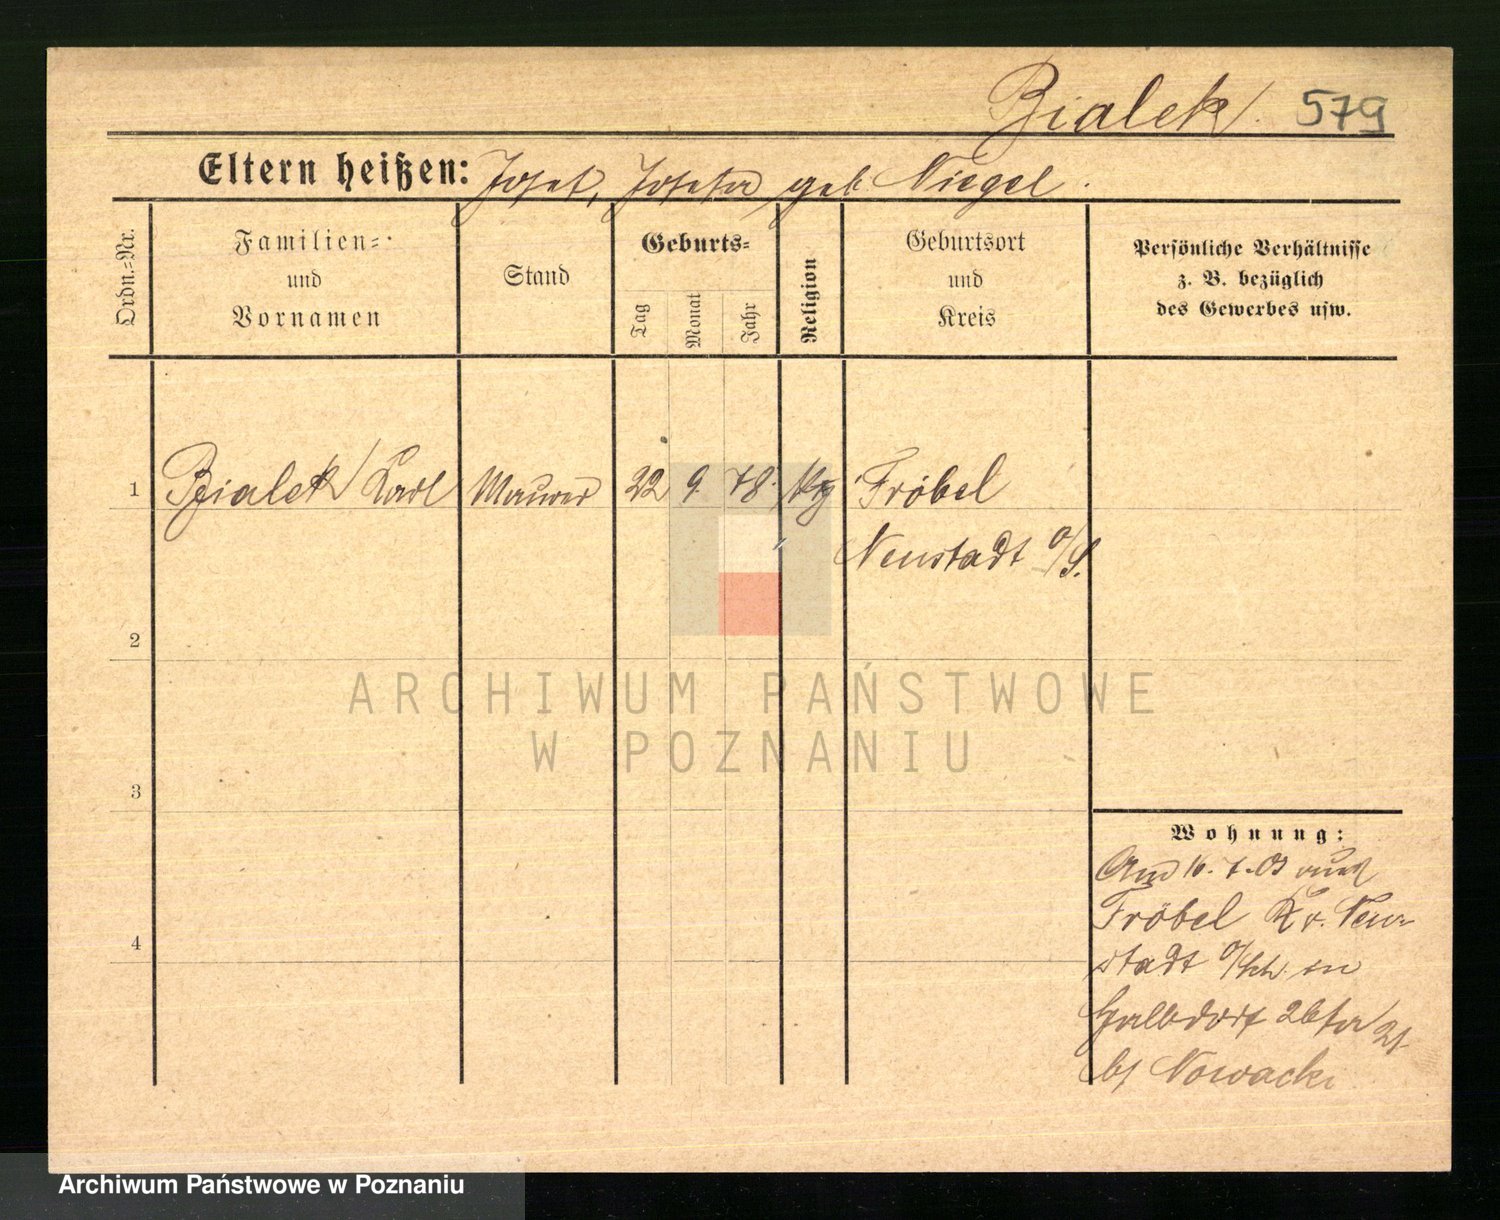 Bialek. 579
Eltern heißen: Josef, Josefa geb. Niegel.
Ordn.=Nr.
Familien=
und
Vornamen
Stand
Geburts=
Tag
Monat
Jahr
Religion
Geburtsort
und
Kreis
Persönliche Verhältnisse
z. B. bezüglich
des Gewerbes usw.
1 Bialek Karl Maurer 22 9. 78. Fröbel
Neustadt O/S.
2
3
4
Wohnung:
Fröbel Kr. Neu-
stadt O/Sch. in
b/ Nowacki
ARCHIWUM PAŃSTWOWE
W POZNANIU
Archiwum Państwowe w Poznaniu